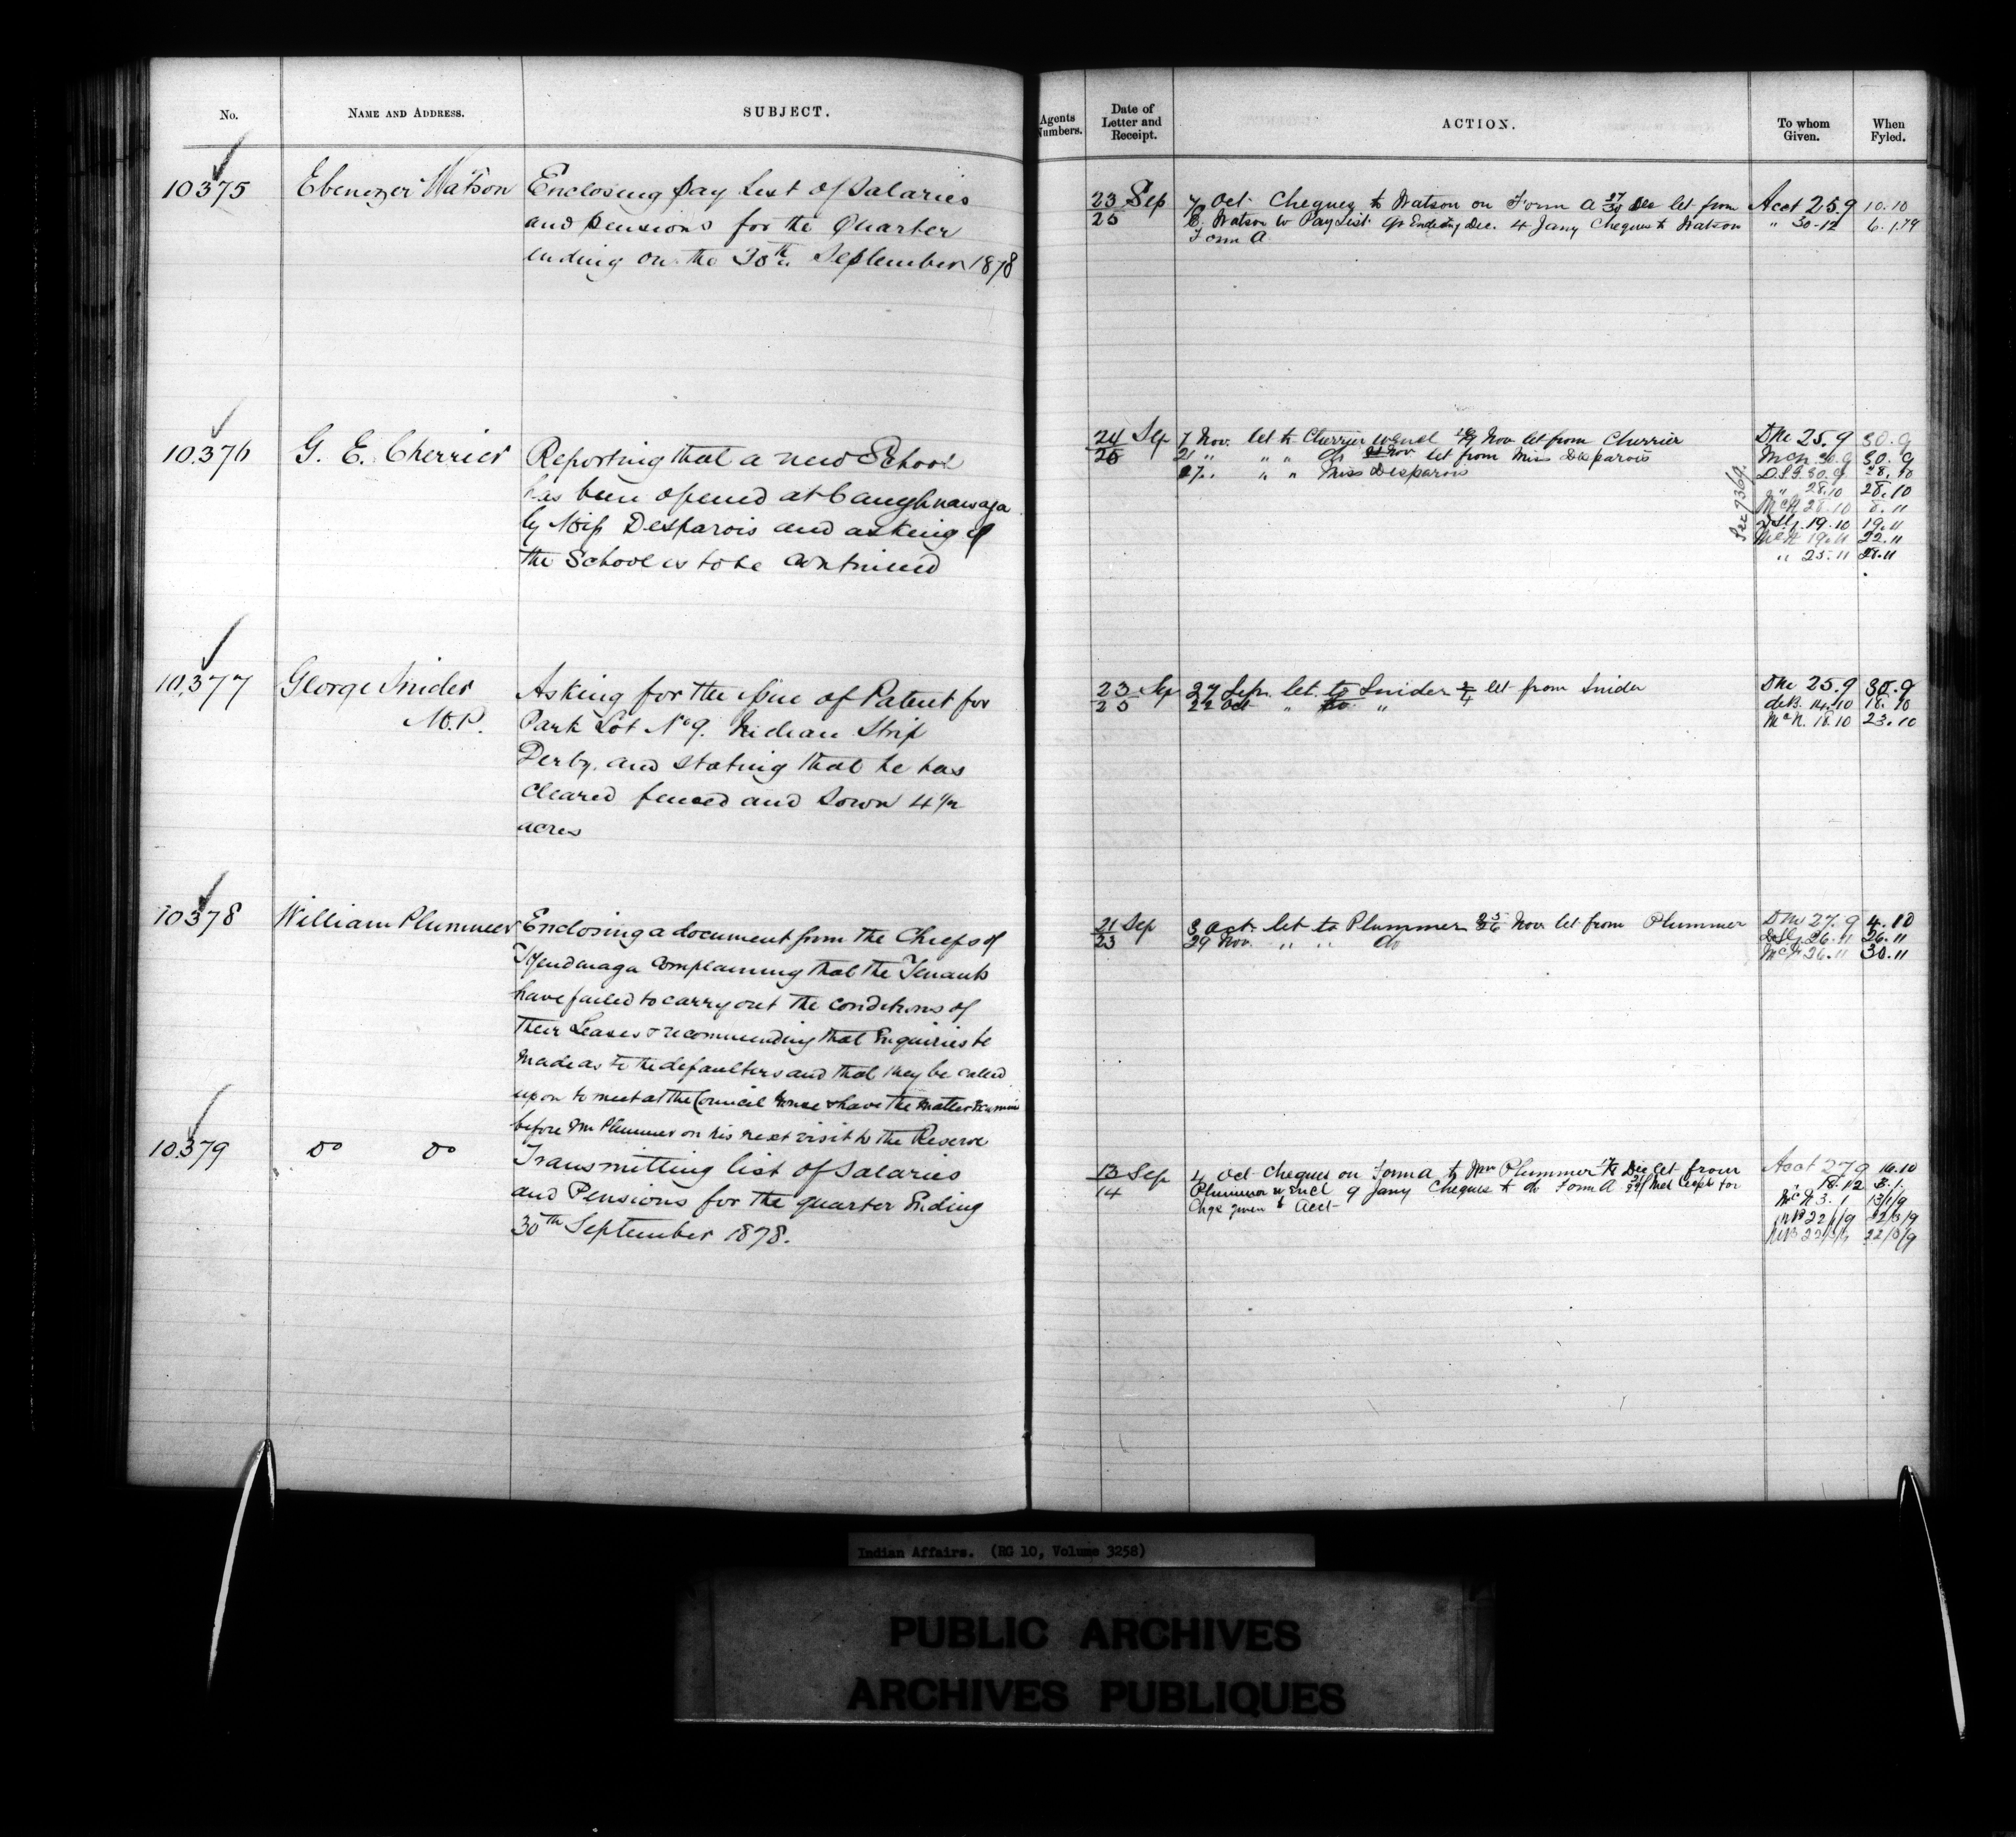 No.
NAME AND ADDRESS.
SUBJECT.
10375
Ebenezer Watson
Enclosing Pay List of Salaries
and Pensions for the Quarter
ending on the 30th September 1878
10.376
G. E. Cherrier
Reporting that a new School
has been opened at Caughnawaga
by Miss Desparois and asking if
the School is to be continued
10,377
George Snider
M.P.
Asking for the issue of Patent for
Park Lot No 9. Indian Strip
Derby. and stating that he has
cleared fenced and sown 4 1/2
acres
10378
William Plummer
Enclosing a document from the Chiefs of
Tyendinaga complaining that the Tenants
have failed to carry out the conditions of
their Leases & recommending that Enquiries be
made as to the defaulters and that they be called
upon to meet at the Council House & have the matter
before Mr Plummer on his next visit to the Reserve
10379
Do Do
Transmitting list of Salaries
and Pensions for the quarter Ending
30th September 1878.
Agents Numbers.
Date of Letter and Receipt.
ACTION.
To whom Given.
When Fyled.
23 Sep
25
7 Oct Cheques to Watson on Form A 27/30 Dec let from
E. Watson w Pay List qr Ending Dec. 4 Jany Cheques to Watson
Form A
Acct 25.9 10.10
" 30-12 6.1.79
24 Sep
25
7 Nov. let to Cherrier w Encl Nov let from Cherrier
21 " " " do Nov let from Miss Desparois
27. " " Miss Desparois
25.9 30.9
30.9
D.S.G. 30.9 28.10
" 28.10 28.10
McN 28.10 8.11
19.10 19.11
19.11 22.11
" 25.11 28.11
23 Sep
25
27 Sep. let to Snider 2/4 let from Snider
22 Oct " to "
25.9 30.9
deB. 14.10 18.10
McN. 18.10 23.10
21 Sep
23
3 Oct let to Plummer 25/26 Nov let from Plummer
29 Nov. " " do
27.9 4.10
26.11 26.11
26.11 30.11
13 Sep
14
4 Oct Cheques on Form A to Wm Plummer Dec let from
Plummer w Encl 9 Jany Cheques to do Form A
Chqs given to Acct
Acct 27.9 10.10
" 18.12 3.1.
McN 3.1 13/1/9
22/3/9
22/3/9
Indian Affairs. (RG 10, Volume 3258)
PUBLIC ARCHIVES
ARCHIVES PUBLIQUES